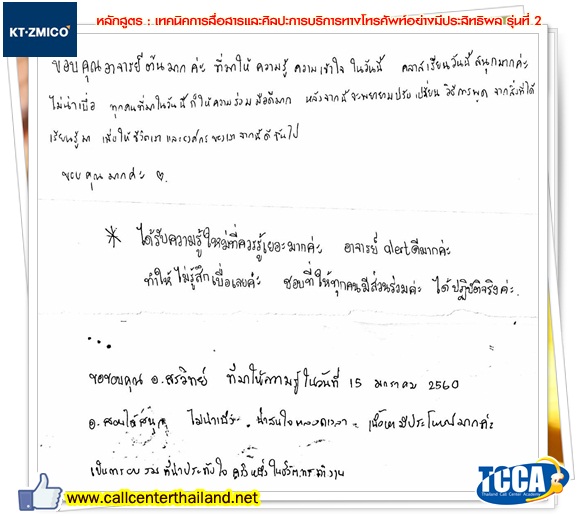 หลักสูตร : เทคนิคการสื่อสารและศิลปะการบริการทางโทรศัพท์อย่างมีประสิทธิพล รุ่นที่ 2
KT·ZMICO
ขอบคุณอาจารย์ต้นมากค่ะ ที่มาให้ ความรู้ ความเข้าใจ ในวันนี้ คลาสเรียนวันนี้ สนุกมากค่ะ
ไม่น่าเบื่อ ทุกคนที่มาในวันนี้ก็ให้ความร่วมมือดีมาก หลังจากนี้จะพยายามปรับเปลี่ยน วิธีการพูด จากสิ่งที่ได้
เรียนรู้มา เพื่อให้ชีวิตเรา และองค์กรของเรา จากนี้ดีขึ้นไป
ขอบคุณมากค่ะ ♡.
* ได้รับความรู้ใหม่ที่ควรรู้เยอะมากค่ะ อาจารย์ alert ดีมากค่ะ
ทำให้ไม่รู้สึกเบื่อเลยค่ะ ชอบที่ให้ทุกคนมีส่วนร่วมค่ะ ได้ปฏิบัติจริงค่ะ.
...
ขอขอบคุณ อ.สรวิทย์ ที่มาให้ความรู้ในวันที่ 15 มกราคม 2560
อ.สอนได้สนุก ไม่น่าเบื่อ. น่าสนใจตลอดเวลา. เนื้อหามีประโยชน์มากค่ะ
เป็นการอบรมที่น่าประทับใจ ครั้งหนึ่งในชีวิตการทำงาน
www.callcenterthailand.net
TCCA
Thailand Call Center Academy